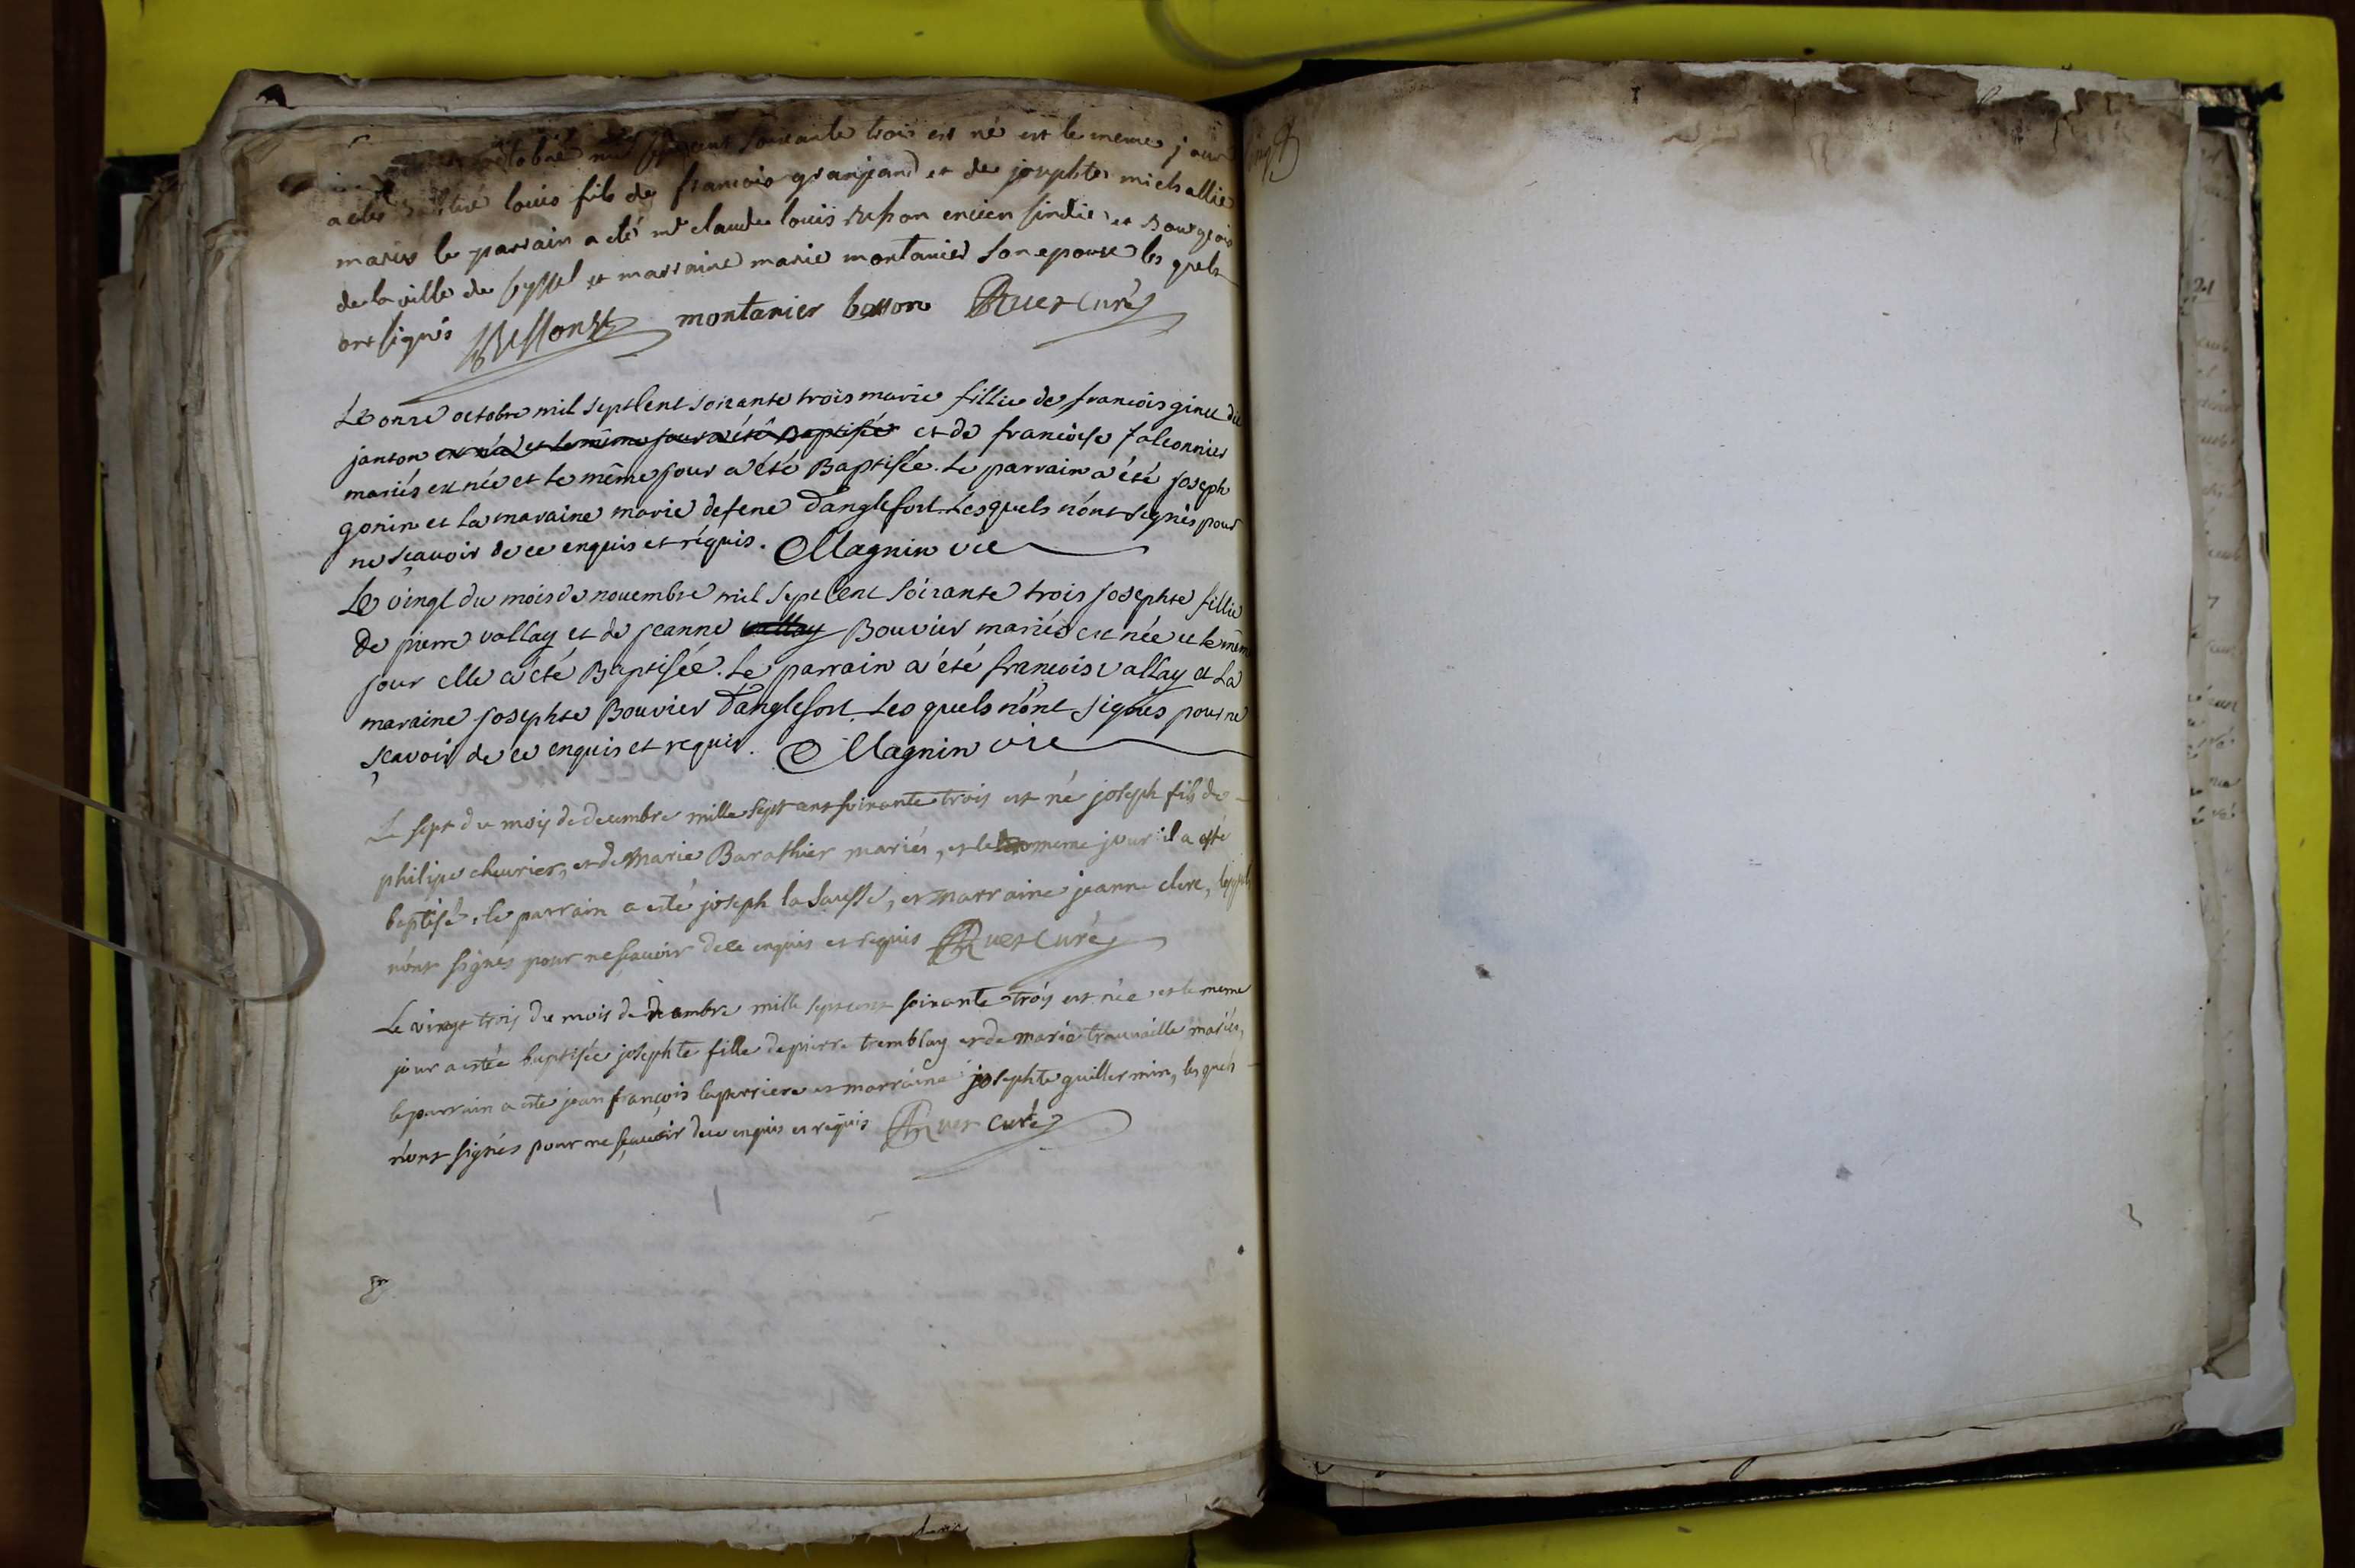 octobre mil sept cent soixante trois est né est le meme jour
a eté baptisé louis fils de francois granjand et de josephte michallie
mariés le parrain a eté mr claude louis besson encien sindic et Bourgeois
de la ville de seyssel et marraine marie montanier son epouse les quels
ont signés Besson montanier besson Ruet Curé
Le onze octobre mil sept Cent soixante trois marie fillie de francois ginet dit
janton est née et le même jour a été Baptisée et de francoise falconnier
mariés est née et le même jour a été Baptisée. Le parrain a été joseph
gonin et la maraine marie defene d'anglefort. Lesquels n'ont signés pour
ne sçavoir de ce enquis et réquis. Magnin vic
Le vingt du mois de novembre mil sept Cent soixante trois josephte fillie
de pierre vallay et de jeanne vallay Bouvier mariés est née et le même
jour elle a été Baptisée. Le parrain a été francois vallay et La
maraine josephte Bouvier d'anglefort. Les quels n'ont signés pour ne
sçavoir de ce enquis et requis. Magnin vic
Le sept du mois de decembre mille sept cent soixante trois est né joseph fils de
philipe cheurier, et de Marie Barathier mariés, et le meme jour il a esté
baptisé, le parrain a esté joseph la Sausse, et marraine jeanne clerc, lesquels
n'ont signés pour ne sçavoir de ce enquis et requis Ruet Curé
Le vingt trois du mois de decembre mille sept cent soixante troys est née et le meme
jour a estée baptisée josephte fille de pierre tremblay et de marie trauvaille mariés,
le parrain a esté jean françois laperriere et marraine josephte guillermin, les quels
n'ont signés pour ne sçavoir de ce enquis et requis Ruet curé